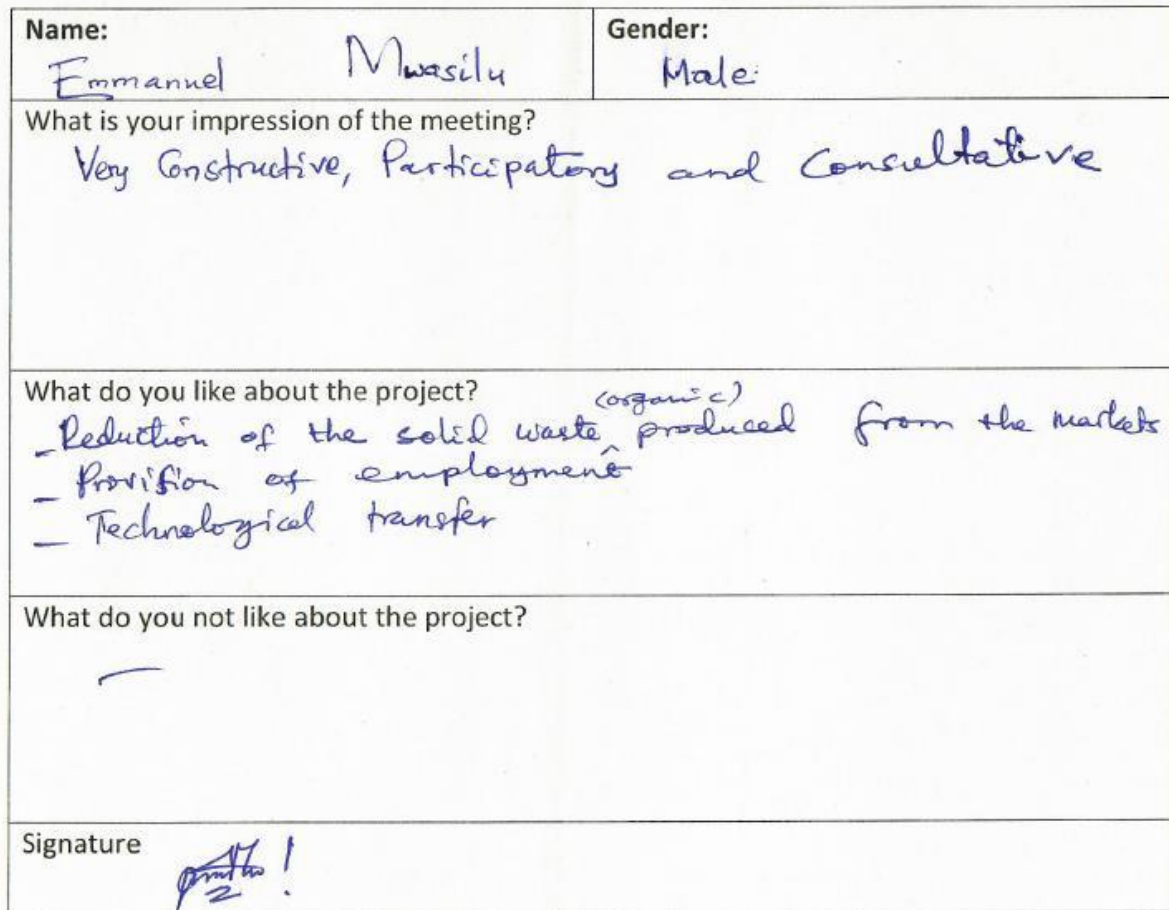 Name:
Emmanuel Mwasilu
Gender:
Male
What is your impression of the meeting?
Very Constructive, Participatory and Consultative
What do you like about the project?
(organic)
- Reduction of the solid waste ^ produced from the markets
- Provision of employment
- Technological transfer
What do you not like about the project?
—
Signature